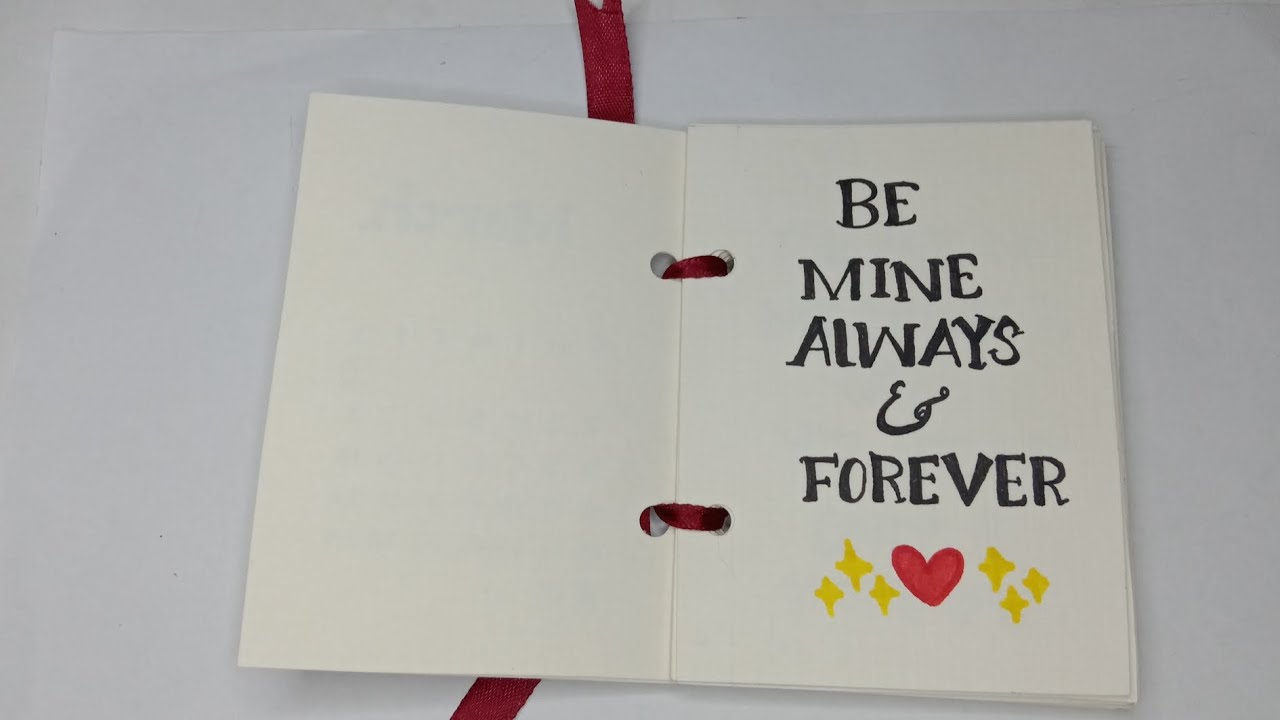 BE
MINE
ALWAYS
&
FOREVER